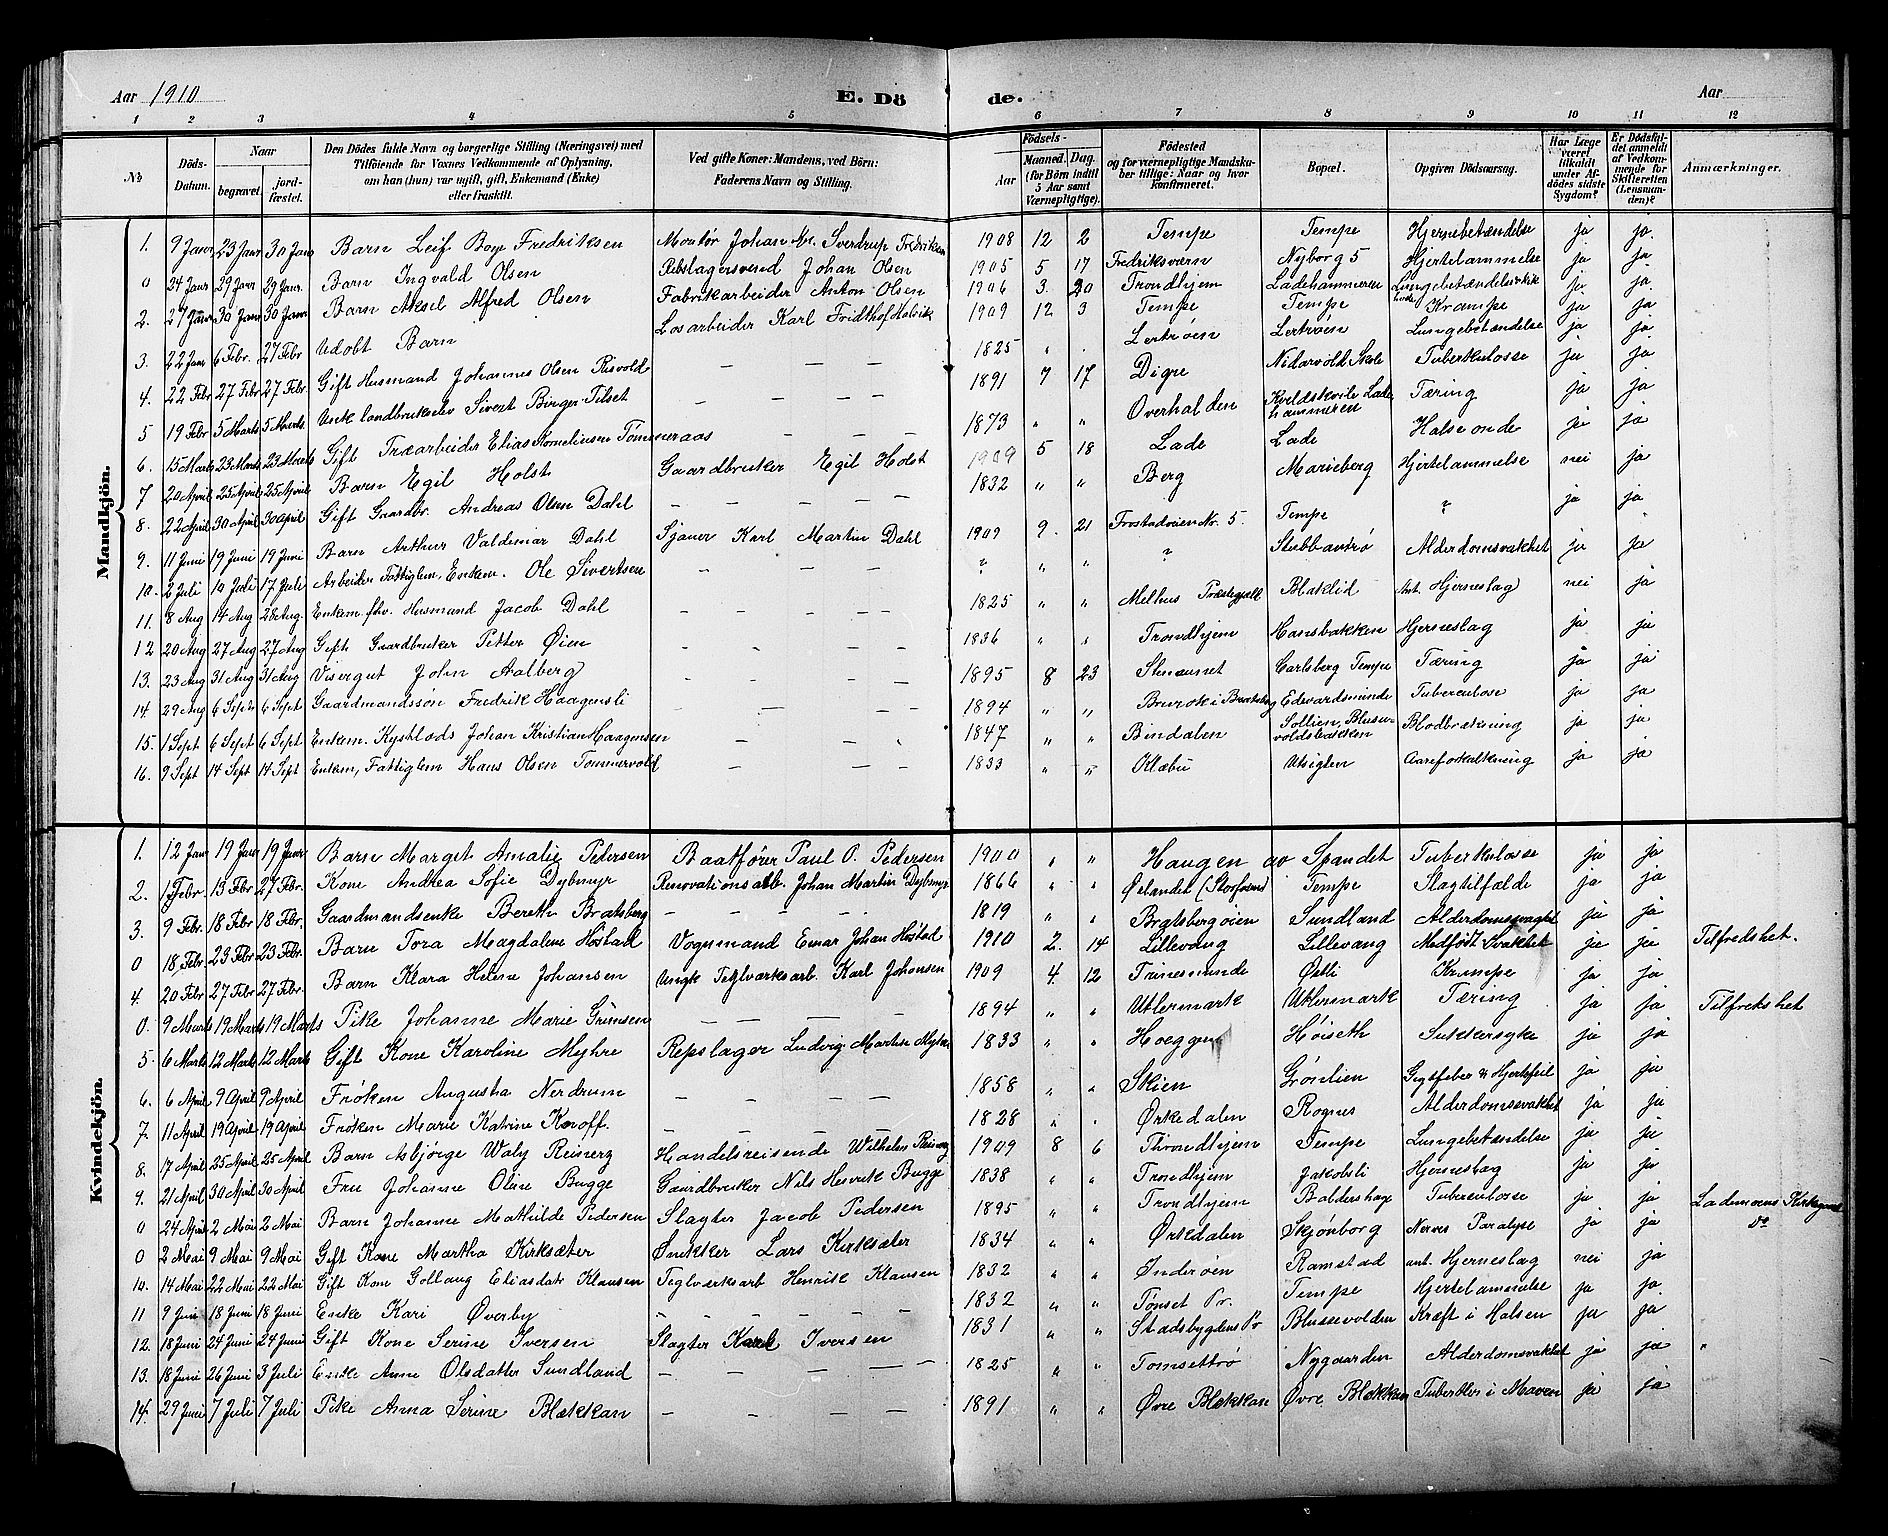 Aar 1910
E. Dö
de.
Aar
1 2 3 4 5 6 7 8 9 10 11 12
№ Döds-Datum. Naar begravet. jordfæstet. Den Dödes fulde Navn og borgerlige Stilling (Næringsvei) med Tilföiende for Voxnes Vedkommende af Oplysning, om han (hun) var ugift, gift, Enkemand (Enke) eller fraskilt. Ved gifte Koner: Mandens, ved Börn: Faderens Navn og Stilling. Födsels- Aar Maaned. Dag. (for Börn indtil 5 Aar samt Værnepligtige). Födested og for værnepligtige Mandskaber tillige: Naar og hvor konfirmeret. Bopæl. Opgiven Dödsaarsag. Har Læge været tilkaldt under Afdödes sidste Sygdom? Er Dödsfaldet anmeldt af Vedkommende for Skifteretten (Lensmanden)? Anmærkninger.
Mandkjön.
1. 9 Janr 23 Janr 30 Janr Barn Leif Boye Fredriksen Montør Johan Sverdrup Fredriksen 1908 12 2 Tempe Tempe Hjernebetændelse ja ja
0 24 Janr 29 Janr 29 Janr. Barn Ingvald Olsen Rebslagersvend Johan Olsen 1905 5 17 Fredriksværn Nyborg 5 Hjertelammelse ja ja
2. 27 Janr 30 Janr 30 Janr Barn Aksel Alfred Olsen Fabrikarbeider Anton Olsen 1906 3. 20 Trondhjem Ladehammeren Lungebetændelse ja ja
3. 22 Janr 6 Febr. 27 Febr Udøbt Barn Løsarbeider Karl Fridthof Holvik 1909 12 3 Tempe Tempe Krampe ja ja
4. 22 Febr 27 Febr 27 Febr Gift Husmand Johannes Olsen Risvold — — — 1825 " . Lertrøen Lertrøen Lungebetændelse ja ja
5 19 Febr 5 Marts 5 Marts Unk landbrukselev Sivert Birger Tilset — — — 1891 7 17 Digre Nidarvold Skole Tuberkulosse ja ja
6. 15 Marts 23 Marts 23 Marts Gift Træarbeider Elias Korneliusen Tømmeraas — — — 1873 " " Overhalden Kveldskvile Ladehammeren Tæring ja ja
7 20 April 25 April 25 April Barn Egil Holst Gaardbruker Egil Holst 1909 5 18 Lade Lade Halseonde ja ja
8. 22 April 30 April 30 april Gift Gaardbr. Andreas Olsen Dahl — — — 1832 " " Berg Marieberg Hjertelammelse nei ja
9. 11 Juni 19 Juni 19 Juni Barn Arthur Valdemar Dahl Sjauer Karl Martin Dahl 1909 9. 21 Frostadveien Nr. 5. Tempe " ja ja
10. 2 Juli 10 Juli 17 Juli Arbeider Fattiglem, Enkem. Ole Sivertsen — — — " " " Stubbantrø Alderdomsvakhet ja ja
11. 8 Aug 14 Aug 28 Aug. Enkem. fhv. Husmand Jacob Dahl — — — 1825 " " Melhus Præstegjæld Blaklid Ant. Hjerneslag nei ja
12 20 Aug 27 Aug 27 Aug Gift Gaardbruker Petter Øien - - - 1836 " " Trondhjem Hansbakken Hjerneslag ja ja
13. 23 Aug 31 Aug 31 Aug Visergut John Aalberg - - - 1895 8 23 Stenunet Carlsberg Tempe Tæring ja ja
14. 29 Aug 6 Sept 6 Sept Gaardmandssøn Fredrik Haagensli — — — 1894 " " Brurok i Bratsberg Edvardsminde Tuberculose ja ja
15. 1 Sept 6 Sept 6 Sept Enkem. Kystlods Johan Kristian Haagensen — — - 1847 " " Bindalen Sollien, Blusuvoldsbakken Blodbrækning ja ja
16. 9 Sept 14 Sept 14 Sept Enkem, Fattiglem Hans Olsen Tømmervold — — — 1833 " " Klæbu Utsigten Aareforkalkning ja ja
Kvindekjön.
1. 12 Janr 19 Janr 19 Janr Barn Marget Amalie Pedersen Baatfører Paul O. Pedersen 1900 " " Haugen av Spandet Tuberkulosse ja ja
2. 1 Febr. 13 Febr 27 Febr. Kone Andrea Sofie Dybmyr Renovationsarb. Johan Martin Dybmyr 1866 " " Ørlandet (Storfosna) Tempe Slagtilfælde ja ja
3. 9 Febr. 18 Febr 18 Febr. Gaardmandsenke Bereth Bratsberg — — — 1819 " " Bratsbergøien Sundland Alderdomssvaghet ja ja
0 18 Febr. 23 Febr 23 Febr. Barn Tora Magdalene Høstad Vognmand Einar Johan Høstad 1910 2. 14 Lillevang Lillevang Medfødt Svakhet ja ja Tilfredshet.
4. 20 Febr 27 Febr 27 Febr. Barn Klara Helene Johansen Ungk Teglværksarb. Karl Johansen 1909 4. 12 Trinesminde Østli Krampe ja ja
0. 9 Marts 19 Marts 19 Marts Pike Johanne Marie Grimsen — — — 1894 " " Utlermark Utlermark Tæring ja ja Tilfredshet
5 6 Marts 12 Marts 12 Marts Gift Kone Karoline Myhre Repslager Ludvig Martin Myhre 1833 " " Hoeggen Høiseth Sukkersyke ja ja
6. 6 April 9 April 9 April Frøken Augusta Nerdrum — — — 1858 " " Skien Grønlien Gigtfeber & Hjertefeil ja ja
7. 11 April 19 April 19 April Frøken Marie Katrine Knoff. — — — 1828 " . Ørkedalen Rognes Alderdomsvakhet ja ja
8. 17 April 25 April 25 April Barn Asbjørge Waly Reinerz Handelsreisende Wilhelm Reinerz 1909 8 6 Throndhjem Tempe Lungebetændelse ja ja
9. 21 April 30 April 30 April Fru Johanne Oline Bugge Gaardbruker Nils Henrik Bugge 1838 " " Trondhjem Jakobsli Hjerneslag ja ja
0 24 April 2 Mai 2 Mai Barn Johanne Mathilde Pedersen Slagter Jacob Pedersen 1895 " " Trondhjem Baldershage Tuberculosse ja ja Lademoens Kirkegaard
0 2 Mai 9 Mai 9 Mai Gift Kone Martha Kirksæter Snekker Lars Kirksæter 1834 " " Ørkedalen Skjønborg Nerves Paralyse ja ja do
10. 14 Mai 22 Mai 22 Mai Gift Kone Gollaug Eliasdatr Klausen Teglverksarb Henrik Klausen 1832 " " Inderøen Ramstad ant. Hjerneslag nei ja
11 9 Juni 18 Juni 18 Juni Enke Kari Øverby — — — 1832 " " Tønset Pr. Tempe Hjertelammelse ja ja
12. 18 Juni 24 Juni 24 Juni Gift Kone Serine Iversen Slagter Karl Iversen 1831 " " Stadsbygdens Pr Blussevolden Kræft i Halsen ja ja
13. 18 Juni 26 Juni 3 Juli Enke Anne Olsdatter Sundland — — — 1825 " " Tomsettrø Nygaarden Alderdomsvakhet ja ja "
14. 29 Juni 7 Juli 7 Juli Pike Anna Serine Blækkan — — — 1891 " " Øvre Blækkan Øvre Blækkan Tubercles i Maven ja ja